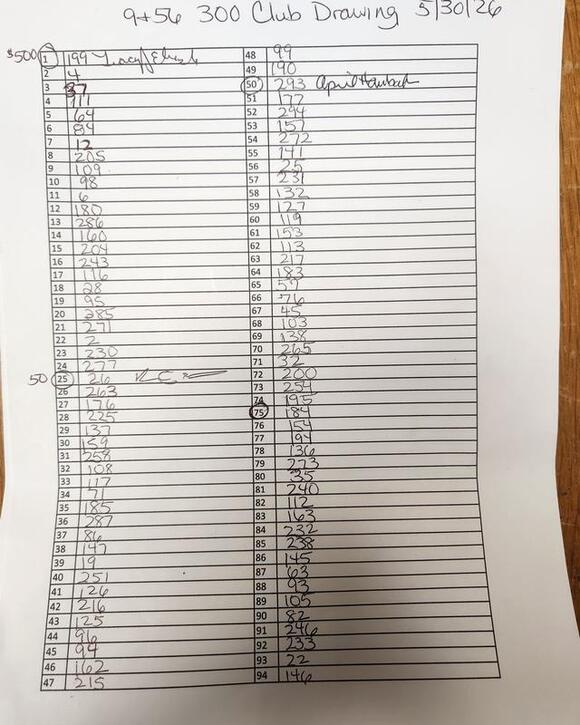 9+56 300 Club Drawing 5/30/26
$500 1 199
2 4
3 37
4 111
5 64
6 84
7 12
8 205
9 109
10 98
11 6
12 180
13 286
14 160
15 204
16 243
17 116
18 28
19 95
20 285
21 271
22 2
23 230
24 277
50 25 26
26 263
27 176
28 225
29 137
30 159
31 258
32 108
33 117
34 71
35 185
36 287
37 86
38 147
39 19
40 251
41 126
42 216
43 125
44 96
45 94
46 162
47 215
48 99
49 190
50 293 April
51 177
52 294
53 157
54 272
55 141
56 25
57 231
58 132
59 127
60 119
61 153
62 113
63 217
64 183
65 57
66 76
67 45
68 103
69 138
70 265
71 32
72 200
73 254
74 195
75 184
76 154
77 194
78 136
79 273
80 35
81 240
82 112
83 163
84 232
85 238
86 145
87 63
88 93
89 105
90 82
91 246
92 233
93 22
94 146